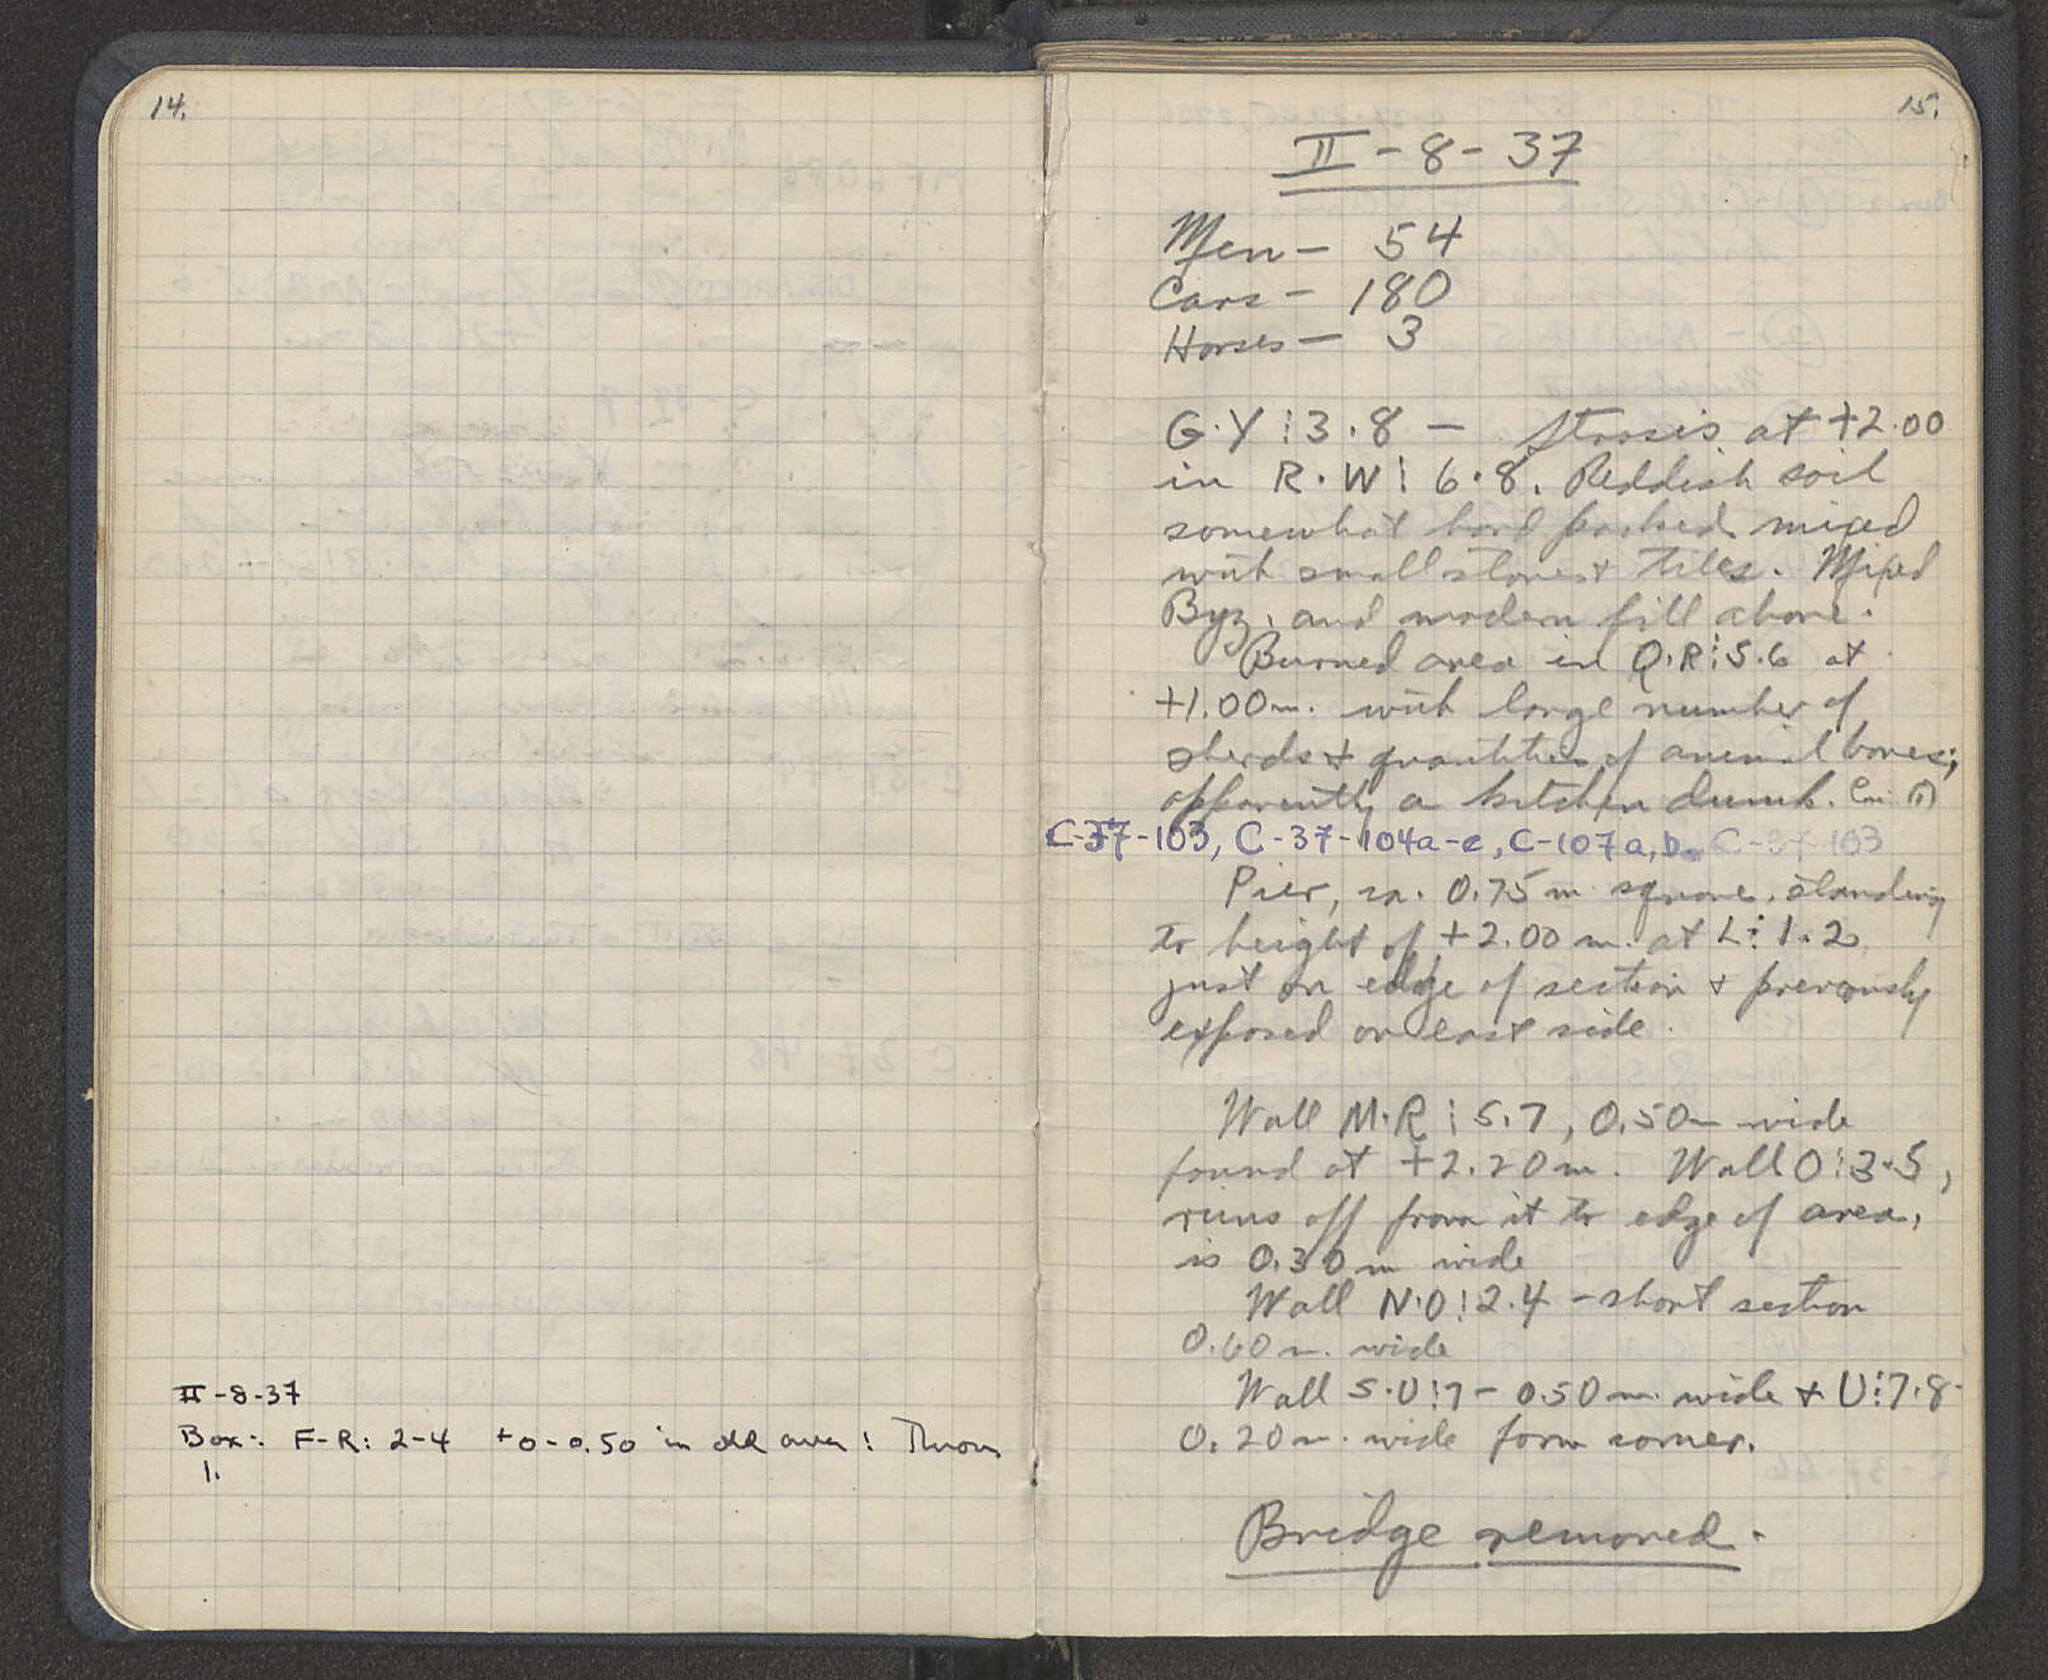 14.
II-8-37
Box: F-R: 2-4 +0-0.50 in all area: Thrown
1.
15.
II-8-37
Men - 54
Cars - 180
Horses - 3
G.Y:3.8 - Strosis at +2.00
in R.W:6.8. Reddish soil
somewhat hard packed mixed
with small stones & tiles. Mixed
Byz. and modern fill above.
Burned area in Q.R:5.6 at
+1.00m. with large number of
sherds & quantities of animal bones;
apparently a kitchen dump.
C-37-103, C-37-104a-e, C-107a,b. C-37-103
Pier, ca. 0.75m square, standing
to height of +2.00m. at L:1.2
just on edge of section & previously
exposed on east side.
Wall M.R:5.7, 0.50m wide
found at +2.20m. Wall O:3.5,
runs off from it to edge of area,
is 0.30m wide
Wall N.O:2.4 - short section
0.60m. wide
Wall S.U:7 - 0.50m. wide & U:7.8
0.20m. wide form corner.
Bridge removed.